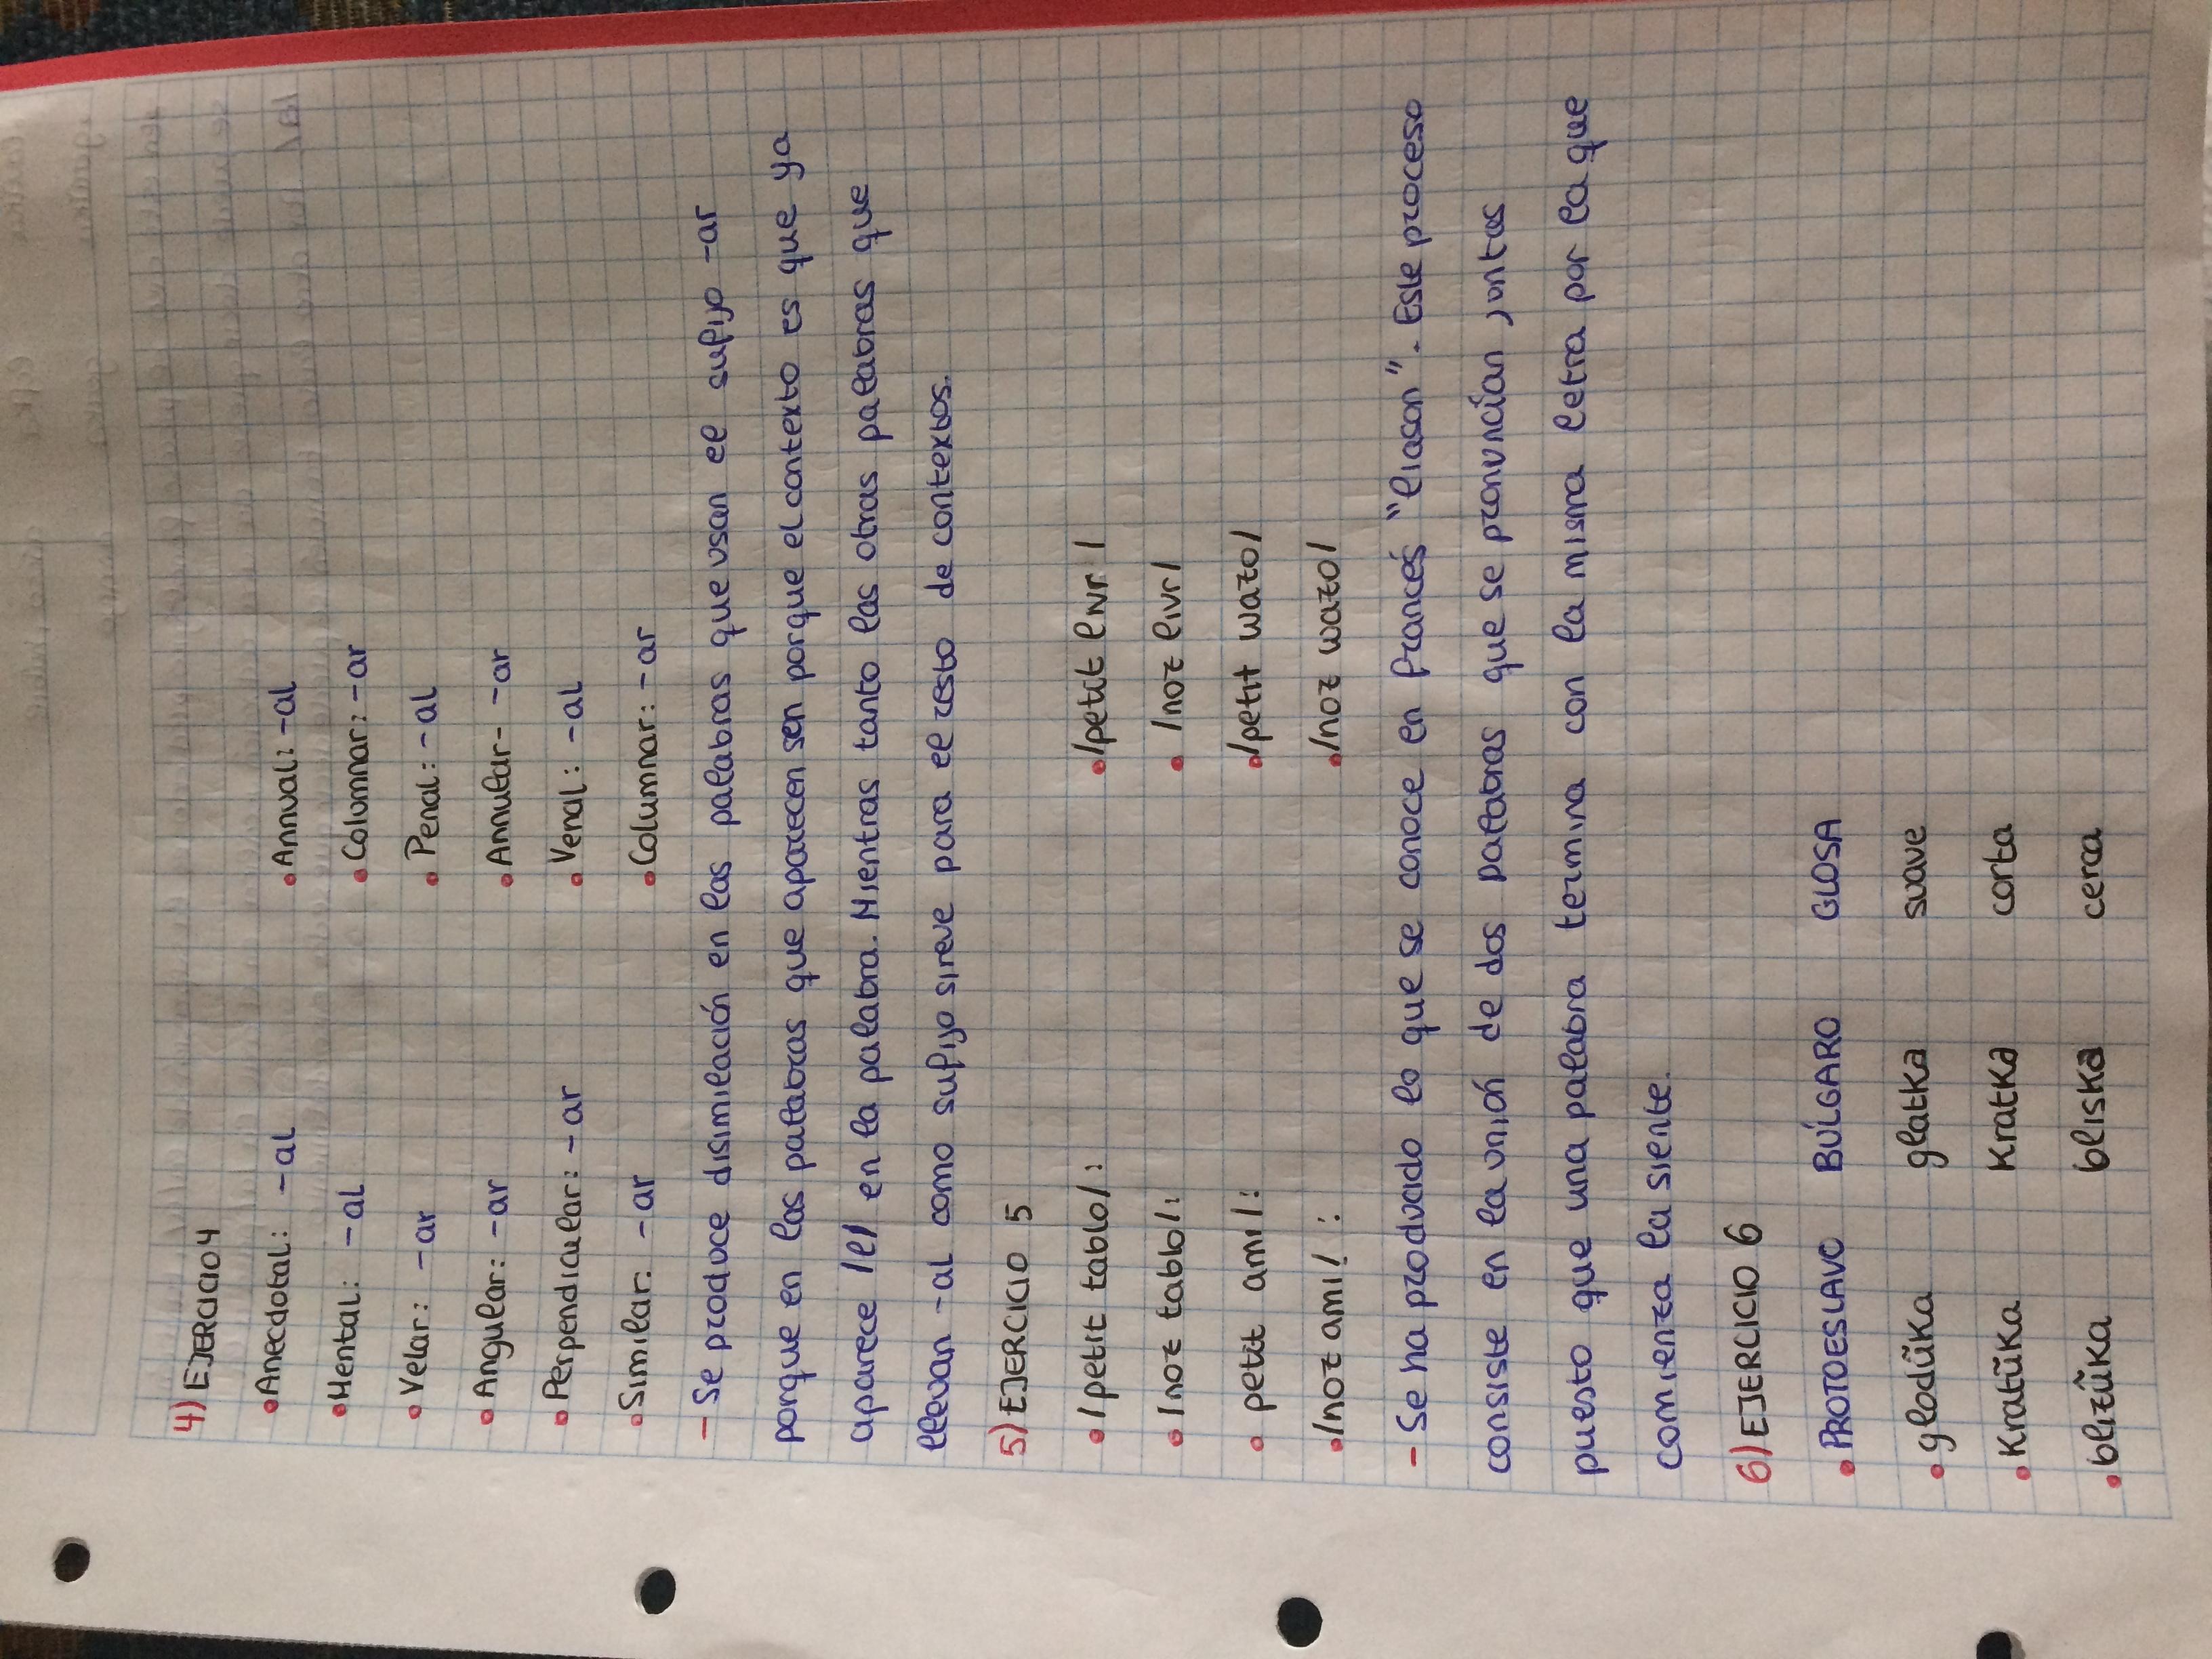 4) EJERCICIO 4
• Anecdotal: -al
• Annual: -al
• Mental: -al
• Columnar: -ar
• Velar: -ar
• Penal: -al
• Angular: -ar
• Annular- -ar
• Perpendicular: -ar
• Venal: -al
• Similar: -ar
• Columnar: -ar
- Se produce disimilación en las palabras que usan el sufijo -ar
porque en las palabras que aparecen sen porque el contexto es que ya
aparece /l/ en la palabra. Mientras tanto las otras palabras que
llevan -al como sufijo sireve para el resto de contextos.
5) EJERCICIO 5
• /petit tablo/:
• /petit livr/
• /noz tablo/:
• /noz livr/
• petit ami/:
• /petit wazo/
• /noz ami/:
• /noz wazo/
- Se ha producido lo que se conoce en francés "liason". Este proceso
consiste en la unión de dos palabras que se pronuncían juntas
puesto que una palabra termina con la misma letra por la que
comienza la siente.
6) EJERCICIO 6
• PROTOESLAVO BÚLGARO GLOSA
• gladŭka glatka suave
• Kratŭka Kratka corta
• blizŭka bliska cerca